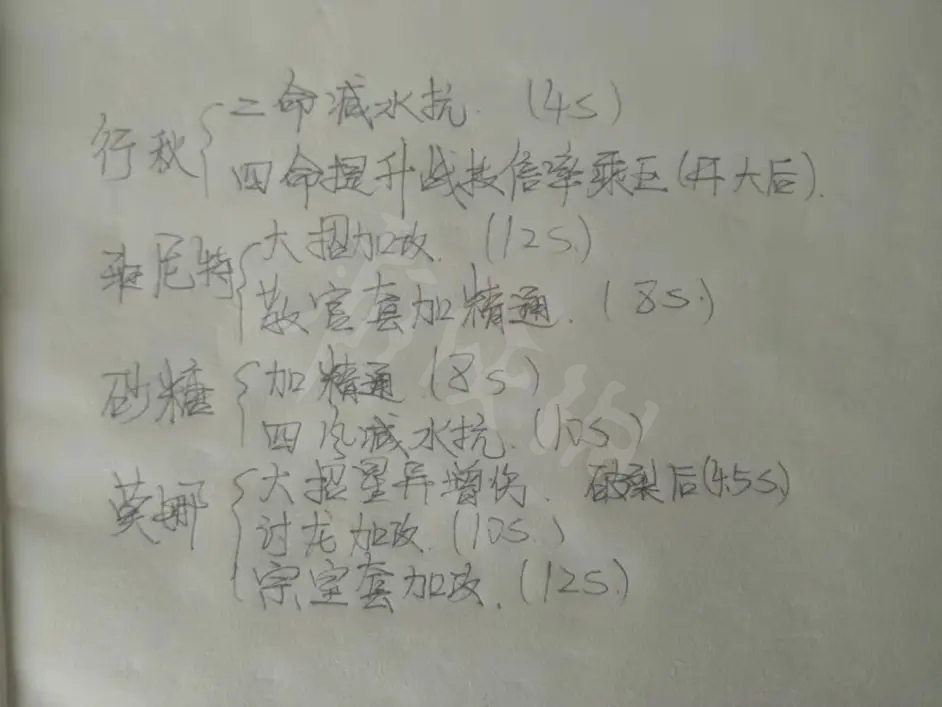 行秋
二命减水抗. (4s)
四命提升战技倍率乘区(开大后).
班尼特
大招加攻. (12s.)
教官套加精通. (8s.)
砂糖
加精通 (8s)
四风减水抗. (10s)
莫娜
大招星异增伤. 破裂后(4.5s.)
讨龙加攻. (10s.)
宗室套加攻. (12s.)